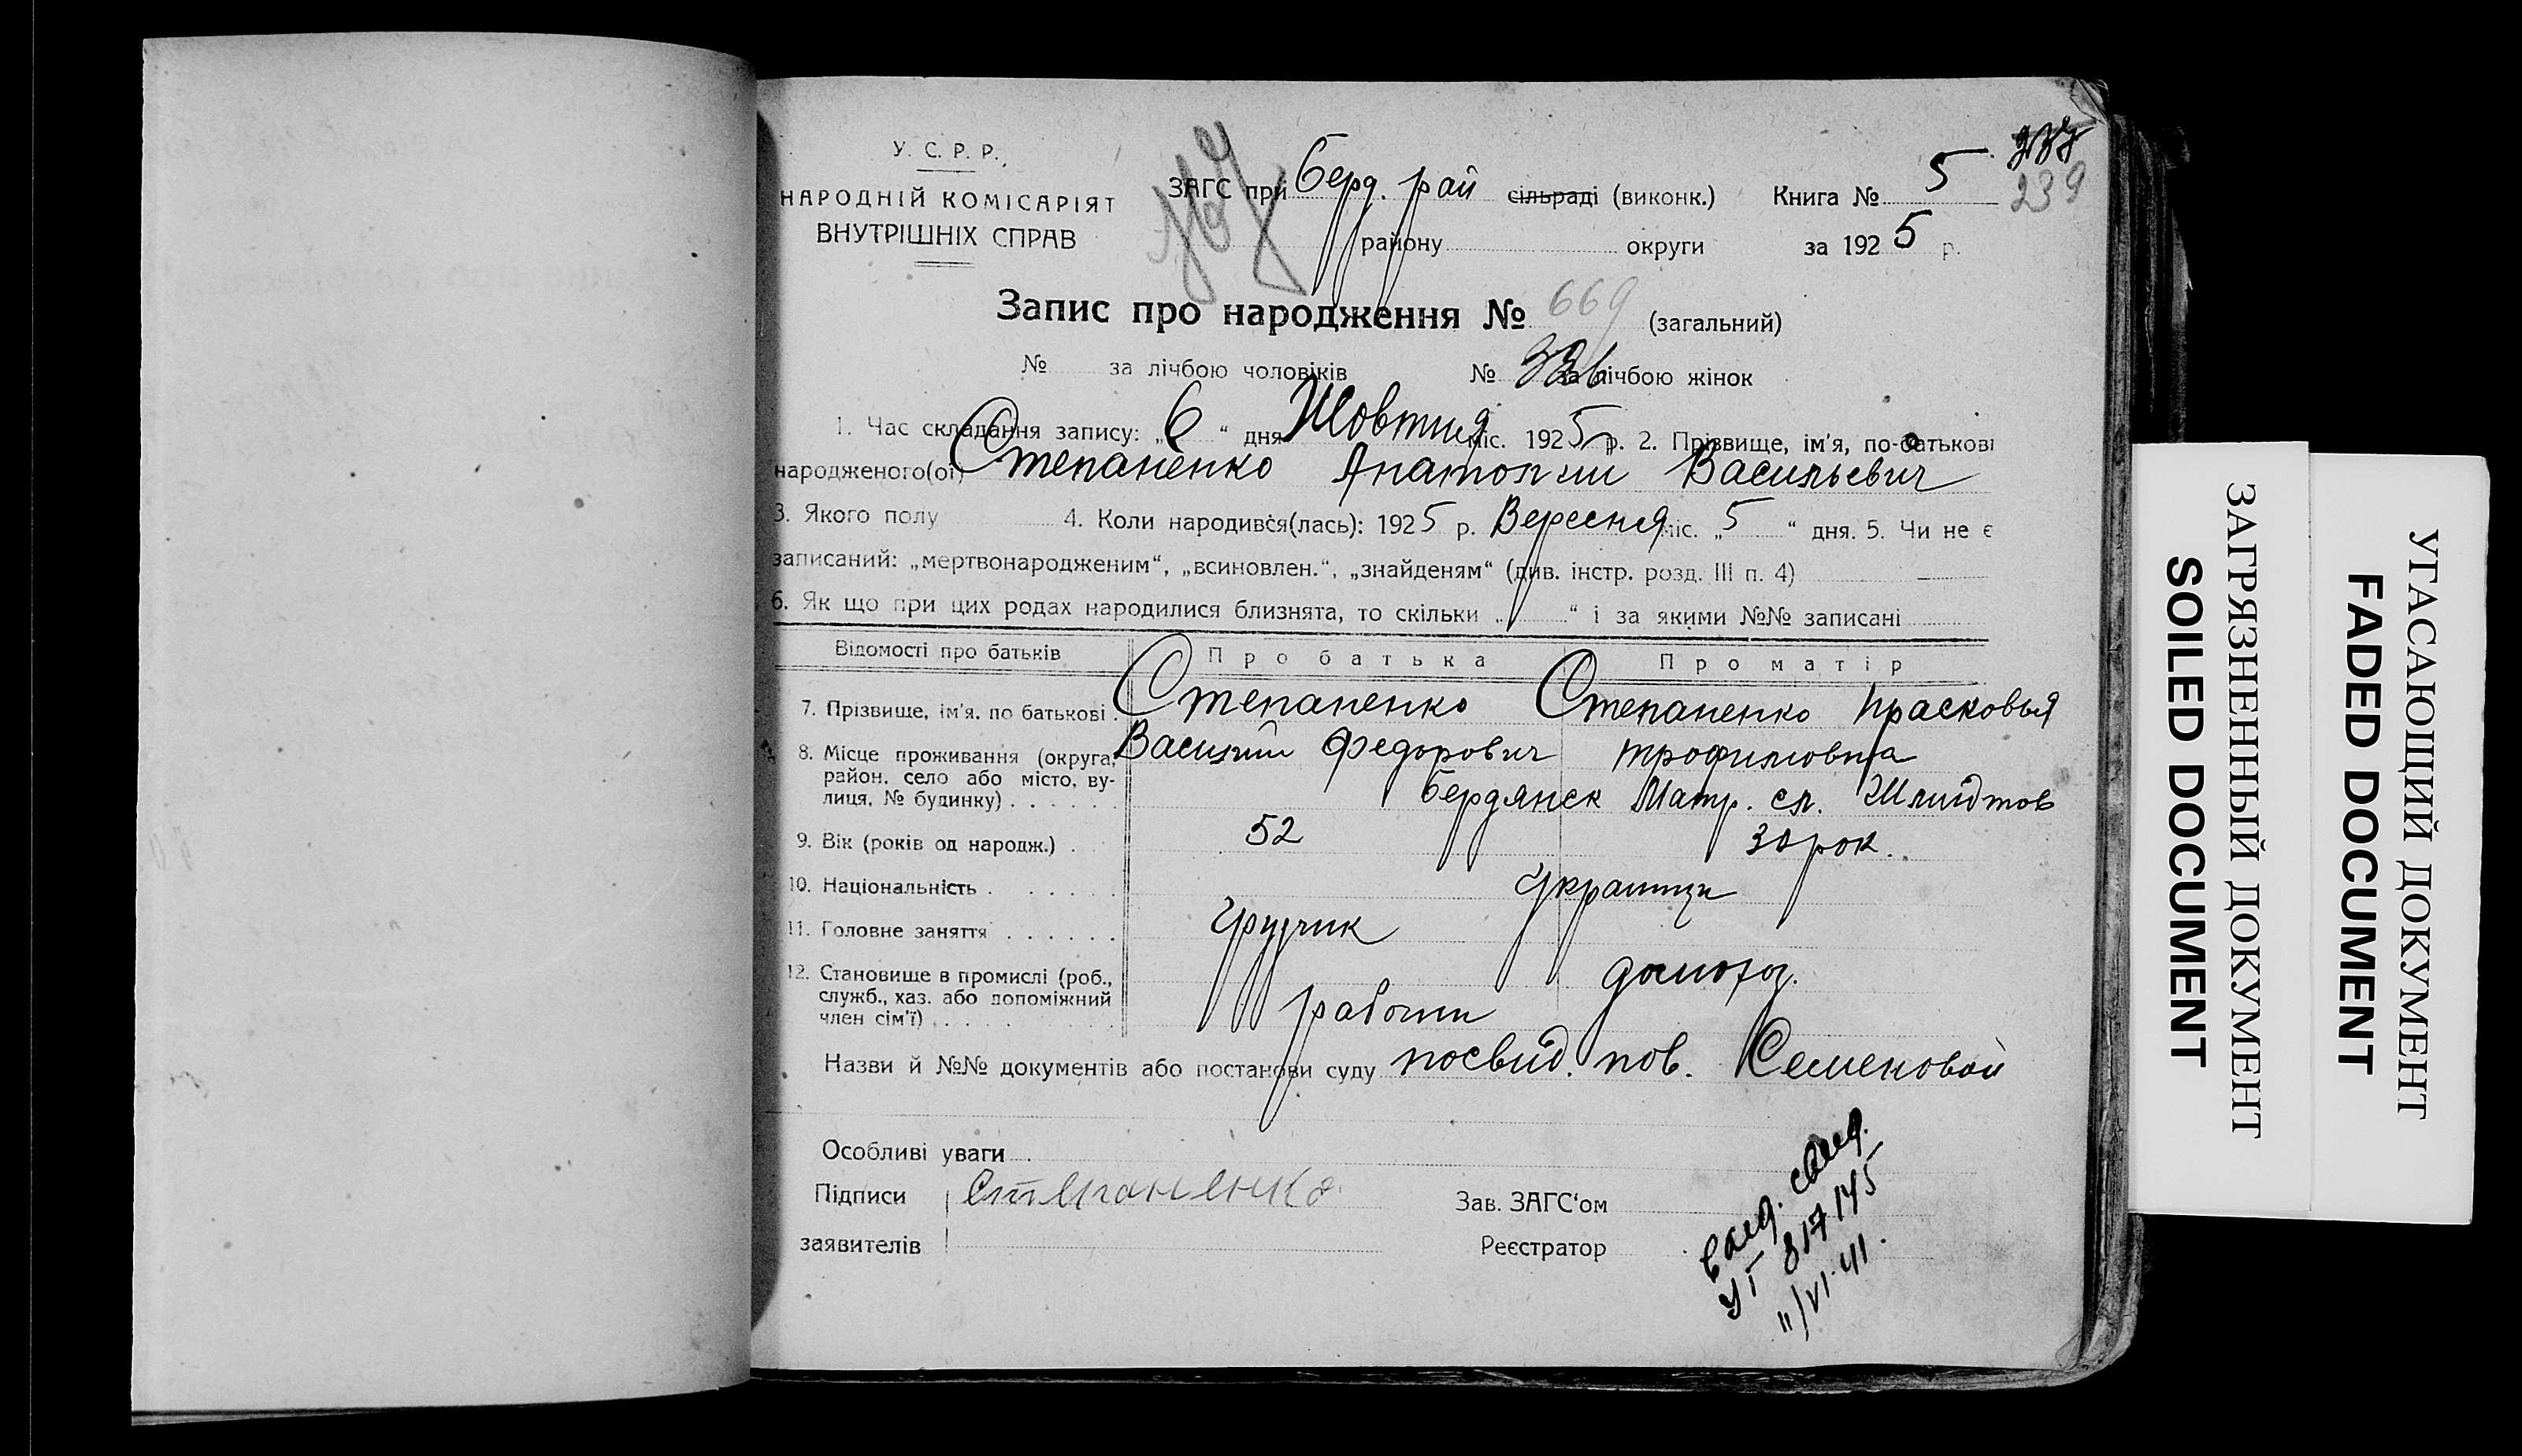 У. С. Р. Р.
НАРОДНІЙ КОМІСАРІЯТ
ВНУТРІШНІХ СПРАВ
ЗАГС при Берд. рай сільраді (виконк.) Книга № 5
239
району округи за 1925 р.
Запис про народження № 669 (загальний)
№ за лічбою чоловіків № за лічбою жінок
1. Час складання запису: „6“ дня Жовтня міс. 1925 р. 2. Прізвище, ім'я, по-батькові
народженого(ої) Степаненко Анатолий Васильевич
3. Якого полу 4. Коли народився(лась): 1925 р. Вересня міс. „5“ дня. 5. Чи не є
записаний: „мертвонародженим“, „всиновлен.“, „знайденям“ (див. інстр. розд. III п. 4)
6. Як що при цих родах народилися близнята, то скільки „ “ і за якими №№ записані
Відомості про батьків Про батька Про матір
7. Прізвище, ім'я, по батькові . Степаненко Степаненко Прасковья
Василий Федорович Трофимовна
8. Місце проживання (округа,
район, село або місто, ву-
лиця, № будинку) . . . . . . Бердянск Матр. сл.
9. Вік (років од народж.) . 52 30 рок.
10. Національність . . . . . . Украинци
11. Головне заняття . . . . . . Грузчик
домохоз.
12. Становище в промислі (роб.,
служб., хаз. або допоміжний
член сім'ї) . . . . . рабочий
Назви й №№ документів або постанови суду посвид. пов. Семеновой
Особливі уваги
Підписи Степаненко Зав. ЗАГС'ом
заявителів Реєстратор
выд. свид.
УГ 817145
11/VI-41.
ЗАГРЯЗНЕННЫЙ ДОКУМЕНТ
SOILED DOCUMENT
УГАСАЮЩИЙ ДОКУМЕНТ
FADED DOCUMENT